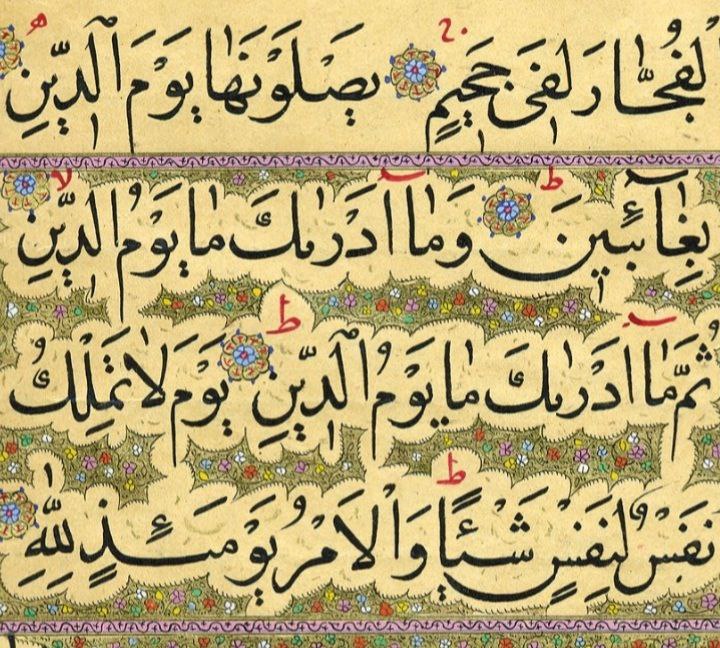 لْفُجَّارَ لَفِى جَحِيمٍ يَصْلَوْنَهَا يَوْمَ الدِّينِ
بِغَآئِبِينَ وَمَآ اَدْرٰىكَ مَا يَوْمُ الدِّينِ
ثُمَّ مَآ اَدْرٰىكَ مَا يَوْمُ الدِّينِ يَوْمَ لَا تَمْلِكُ
نَفْسٌ لِنَفْسٍ شَيْئًا وَالْاَمْرُ يَوْمَئِذٍ لِلّٰهِ